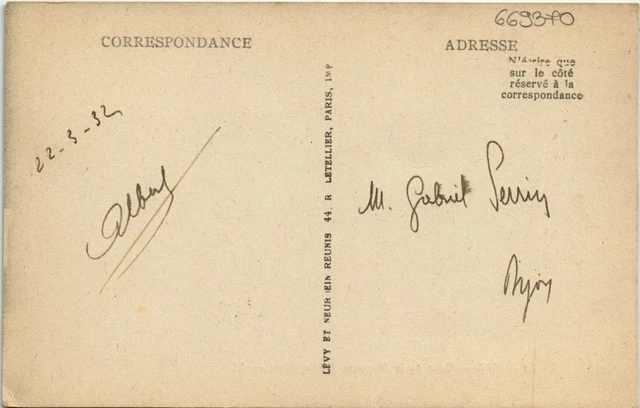 669370
CORRESPONDANCE
ADRESSE
N'écrire que
sur le côté
réservé à la
correspondance
22-3-32
Albert
LÉVY ET NEURDEIN REUNIS 44. R LETELLIER, PARIS, IMP
M. Gabriel Perrin
Dijon